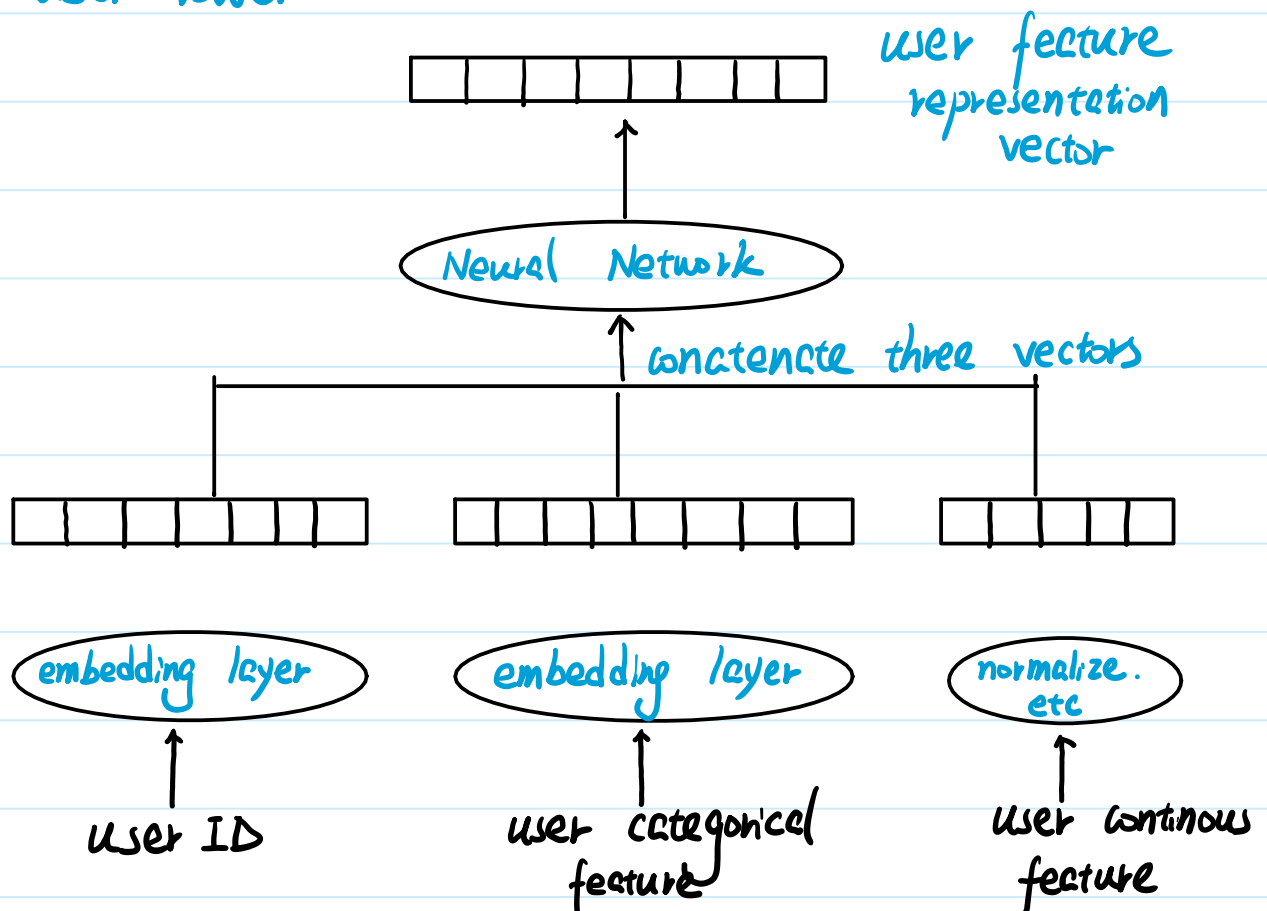 user feature
representation
vector
Neural Network
concatenate three vectors
embedding layer
embedding layer
normalize.
etc
user ID
user categorical
feature
user continous
feature